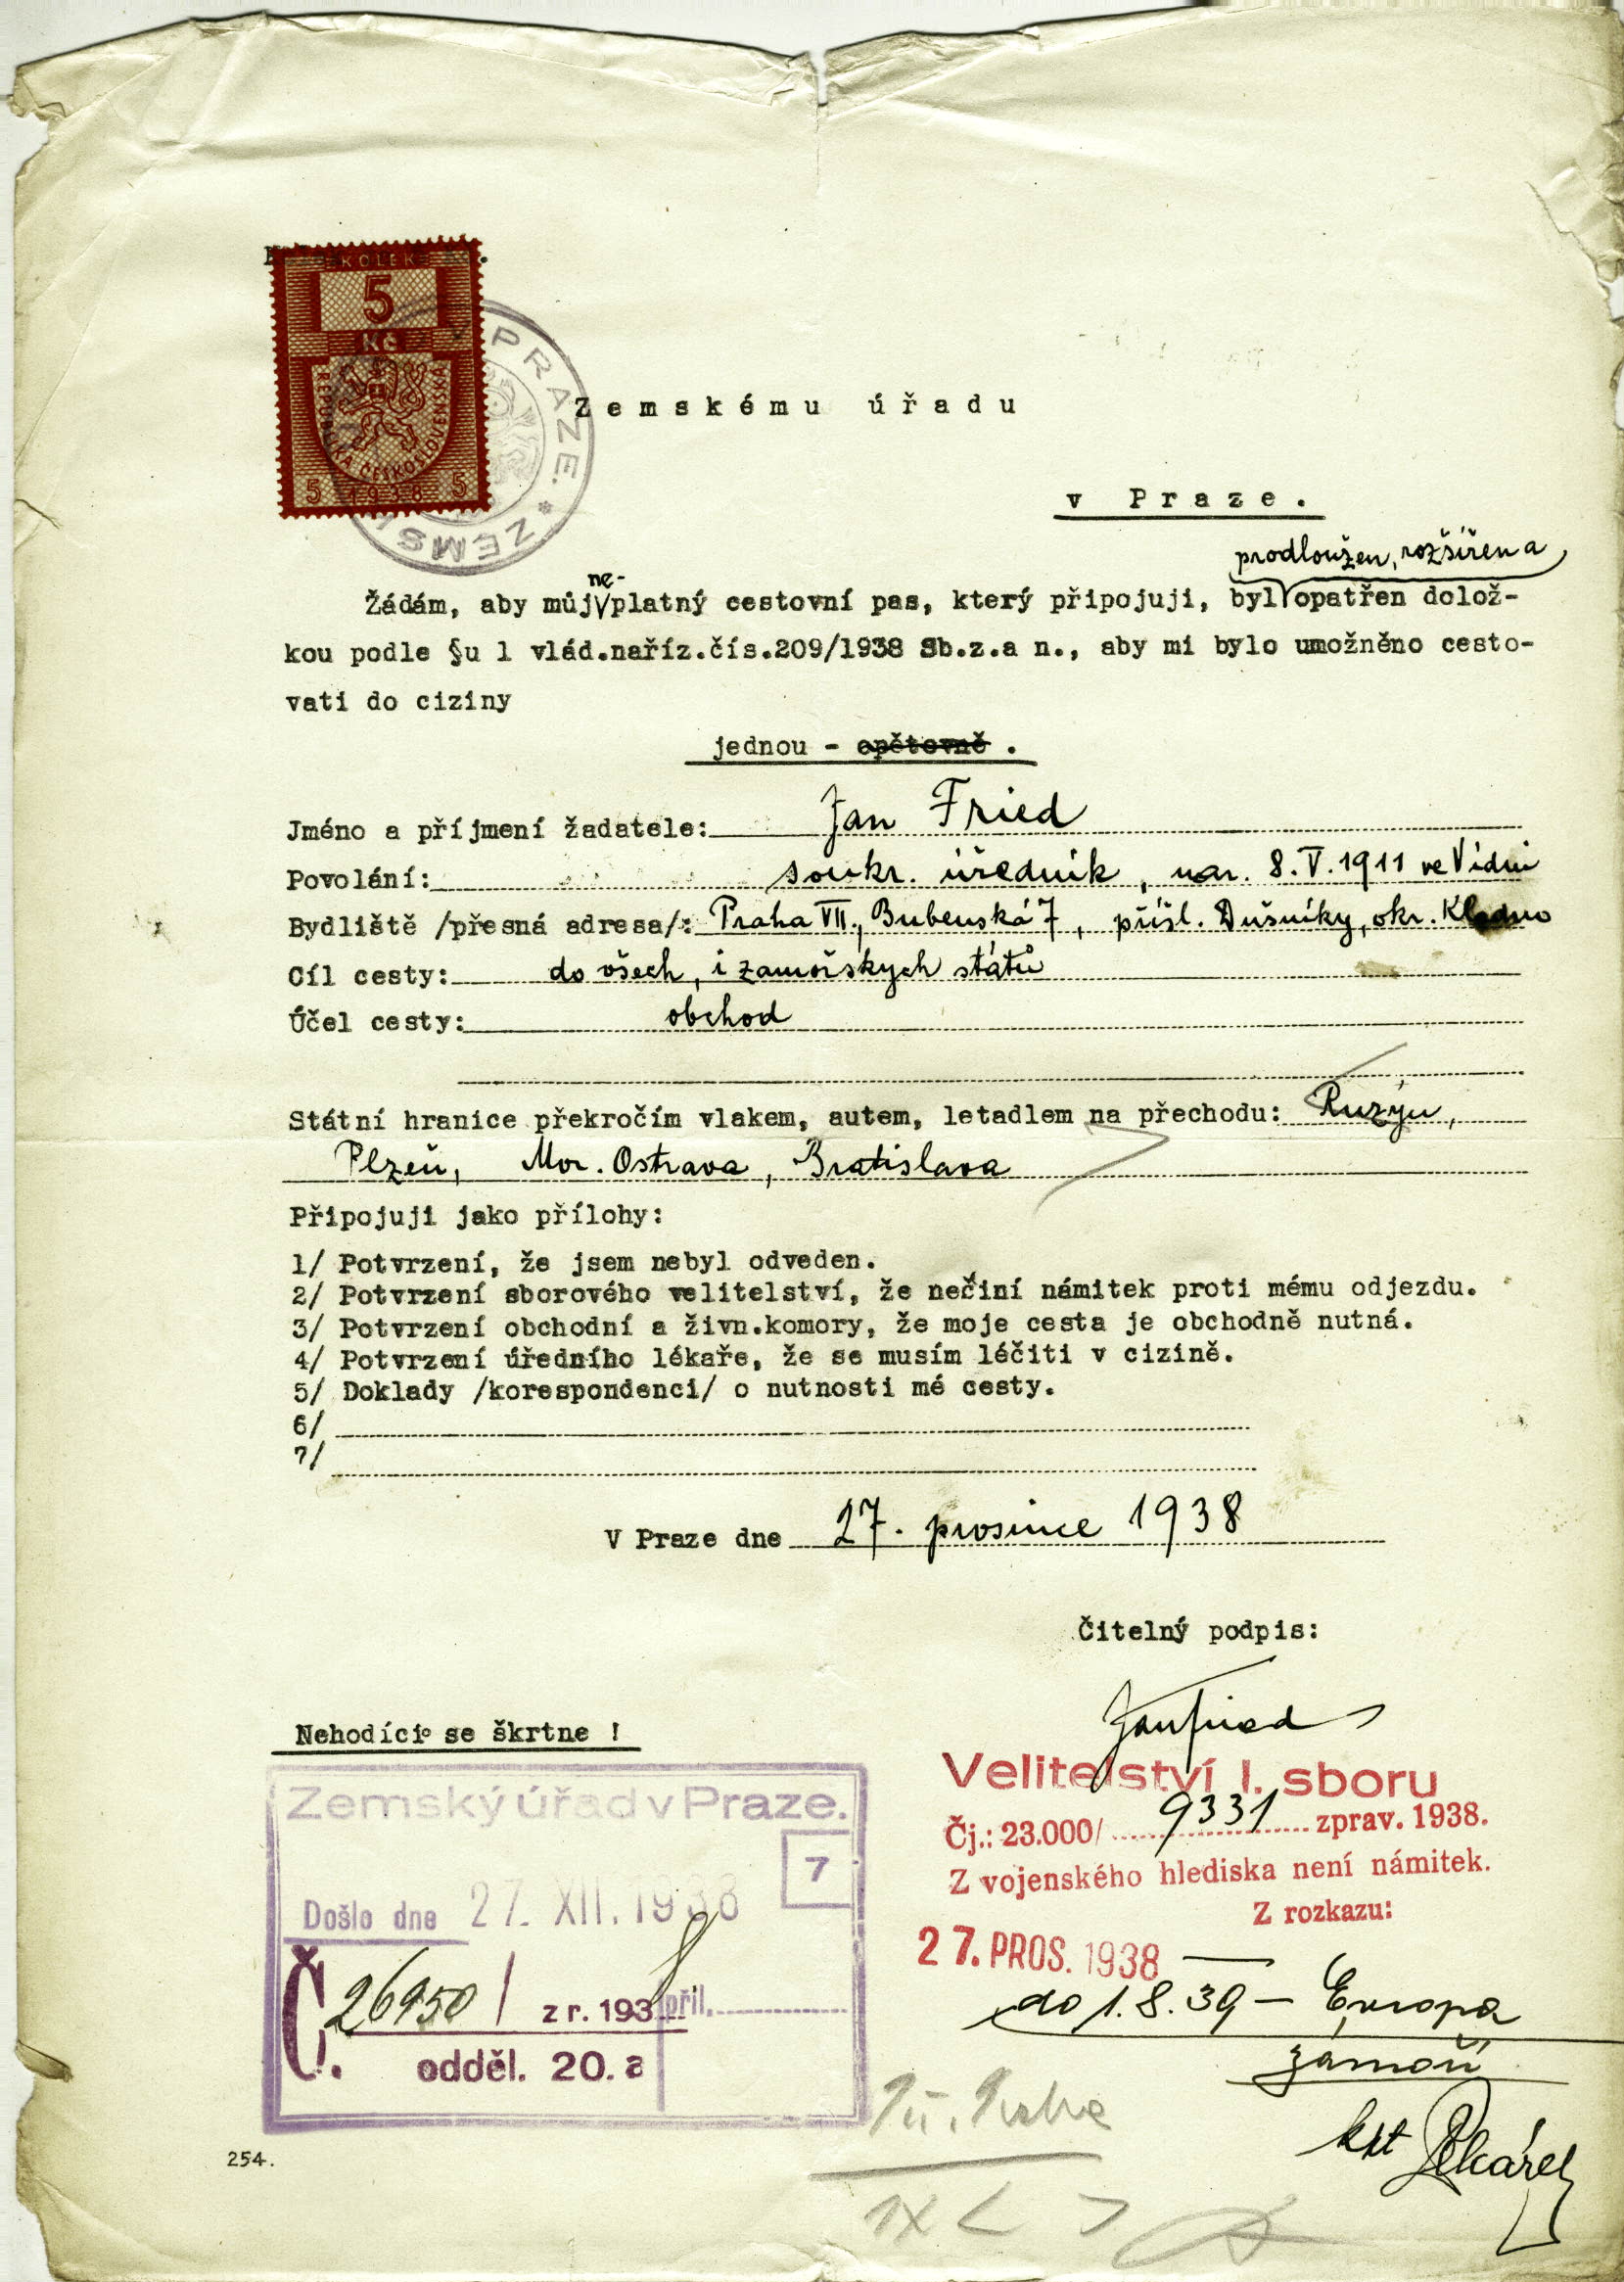 KOLEK
5
Kč
REPUBLIKA ČESKOSLOVENSKÁ
5 1938 5
V PRAZE * ZEMS
Zemskému úřadu
v Praze.
prodloužen, rozšířen a
ne-
Žádám, aby můj platný cestovní pas, který připojuji, byl opatřen dolož-
kou podle §u 1 vlád.naříz.čís.209/1938 Sb.z.a n., aby mi bylo umožněno cesto-
vati do ciziny
jednou - opětovně .
Jméno a příjmení žadatele: Jan Fried
Povolání: soukr. úředník, nar. 8.V.1911 ve Vídni
Bydliště /přesná adresa/: Praha VII., Bubenská 7, přísl. Dušníky, okr. Kladno
Cíl cesty: do všech, i zamořských států
Účel cesty: obchod
Státní hranice překročím vlakem, autem, letadlem na přechodu: Ruzyň,
Plzeň, Mor. Ostrava, Bratislava
Připojuji jako přílohy:
1/ Potvrzení, že jsem nebyl odveden.
2/ Potvrzení sborového velitelství, že nečiní námitek proti mému odjezdu.
3/ Potvrzení obchodní a živn.komory, že moje cesta je obchodně nutná.
4/ Potvrzení úředního lékaře, že se musím léčiti v cizině.
5/ Doklady /korespondenci/ o nutnosti mé cesty.
6/
7/
V Praze dne 27. prosince 1938
Čitelný podpis:
Jan Fried
Nehodící se škrtne !
Zemský úřad v Praze.
7
Došlo dne 27. XII. 1938
Č. 26950/ z r. 1938 příl.
odděl. 20. a
Velitelství I. sboru
Čj.: 23.000/ 9331 zprav. 1938.
Z vojenského hlediska není námitek.
Z rozkazu:
27. PROS. 1938
do 1.8.39 – Evropa
zámoří
kpt Pekárek
254.
1x < >